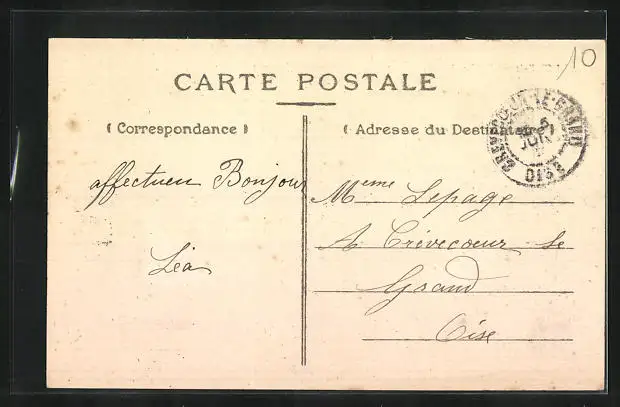 10
CARTE POSTALE
( Correspondance )
( Adresse du Destinataire )
CRÈVECOEUR-LE-GRAND
5
JUIN
OISE
affectueu Bonjour
Léa
Mme Lepage
A Crèvecoeur le
Grand
Oise